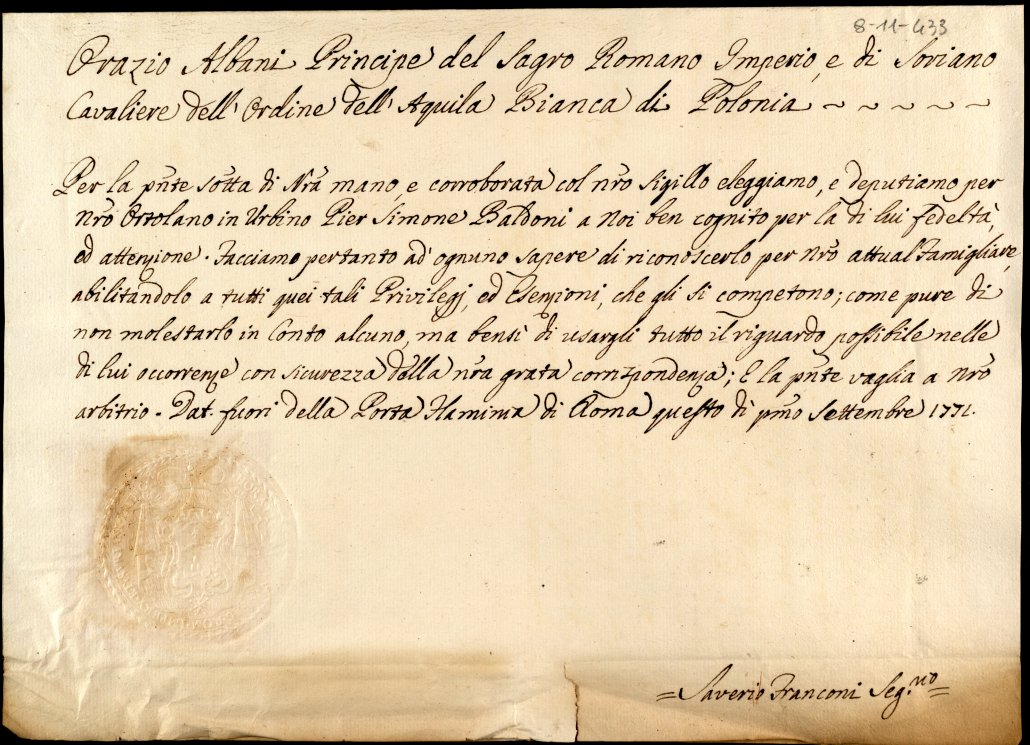 8-11-433
Orazio Albani Principe del Sagro Romano Imperio, e di Soriano
Cavaliere dell' Ordine dell' Aquila Bianca di Polonia ~ ~ ~ ~ ~
Per la pñte sotta di Nrã mano, e corroborata col nrõ Sigillo eleggiamo, e deputiamo per
Nrõ Ortolano in Urbino Pier Simone Baldoni a Noi ben cognito per la di lui fedeltà,
ed attenzione. Facciamo pertanto ad' ognuno sapere di riconoscerlo per Nrõ attual Famigliare,
abilitandolo a tutti quei tali Privilegj, ed Esenzioni, che gli si competono; come pure di
non molestarlo in Conto alcuno, ma bensì di usargli tutto il riguardo possibile nelle
di lui occorrenze con sicurezza della nrã grata corrispondenza; E la pñte vaglia a Nrõ
arbitrio. Dat. fuori della Porta Flaminia di Roma questo dì pmõ Settembre 1771.
=Saverio Franconi Seg.rio=